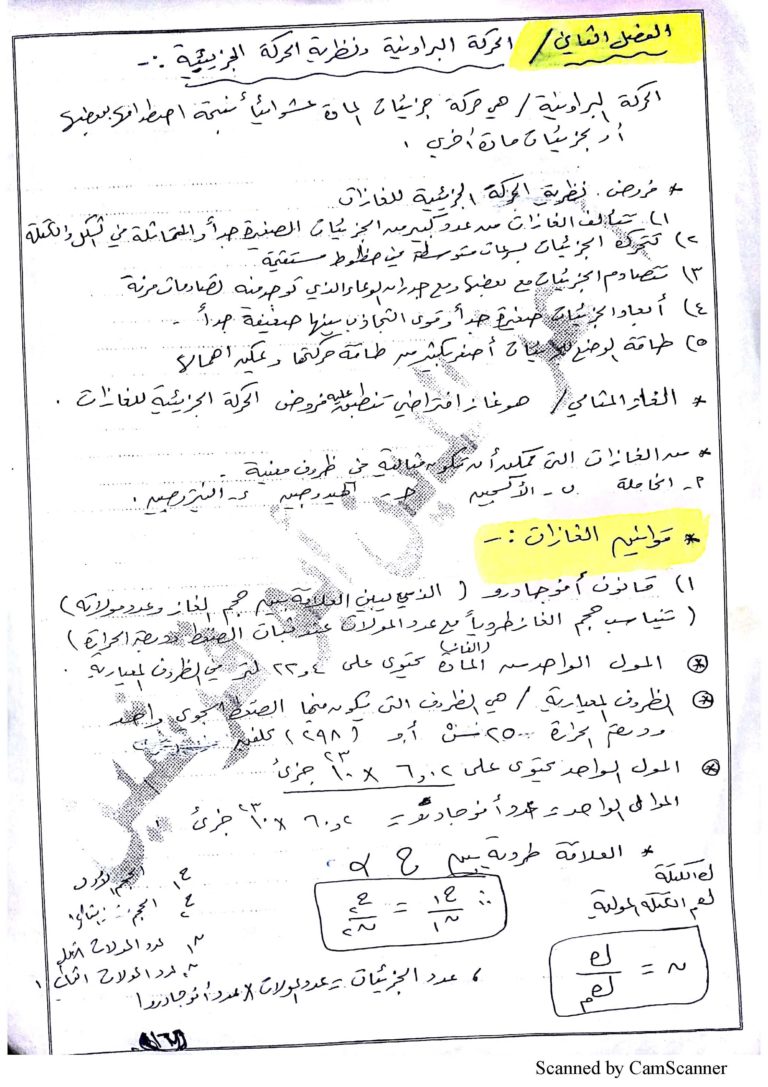 الفصل الثاني / الحركة البراونية ونظرية الحركة الجزيئية :-
الحركة البراونية / هي حركة جزيئات المادة عشوائياً نتيجة اصطدامها ببعضها
أو بجزيئات مادة أخرى .
* فروض نظرية الحركة الجزيئية للغازات
١) تتألف الغازات من عدد كبير من الجزيئات الصغيرة جداً والمتماثلة في الشكل والكتلة
٢) تتحرك الجزيئات بسرعات متوسطة في خطوط مستقيمة
٣) تتصادم الجزيئات مع بعضها ومع جدران الوعاء الذي توجد منه تصادمات مرنة
٤) أبعاد الجزيئات صغيرة جداً وقوى التجاذب بينها ضعيفة جداً -
٥) طاقة الوضع للجزيئات أصغر بكثير من طاقة حركتها ويمكن اهمالها
* الغاز المثالي / هو غاز افتراضي تنطبق عليه فروض الحركة الجزيئية للغازات .
* من الغازات التي يمكن أن تكون مثالية في ظروف معينة -
٢- الخاملة ب- الأكسجين ح- الهيدروجين ء- النيتروجين .
* قوانين الغازات :-
١) قانون أفوجادرو ( الذي يبين العلاقة بين حجم الغاز وعدد مولاته )
( تتناسب حجم الغاز طردياً مع عدد المولات عند ثبات الضغط ودرجة الحرارة )
* المول الواحد من المادة (الغاز) يحتوي على ٢٢,٤ لتر في الظروف المعيارية .
* الظروف المعيارية / هي الظروف التي يكون فيها الضغط الجوي واحد
ودرجة الحرارة ٢٥ أو (٢٩٨) كلفن
* المول الواحد يحتوي على ٦,٠٢ × ١٠^٢٣ جزئ
المول الواحد = عدد أفوجادرو = ٦,٠٢ × ١٠^٢٣ جزئ
* العلاقة طردية بين ح α
∴ ح١/ن١ = ح٢/ن٢
ح١ الحجم الأول
ح٢ الحجم الثاني
ن١ عدد المولات الأول
ن٢ عدد المولات الثاني
ك الكتلة
كم الكتلة المولية
ن = ك/كم
، عدد الجزيئات = عدد المولات × عدد أفوجادرو
Scanned by CamScanner